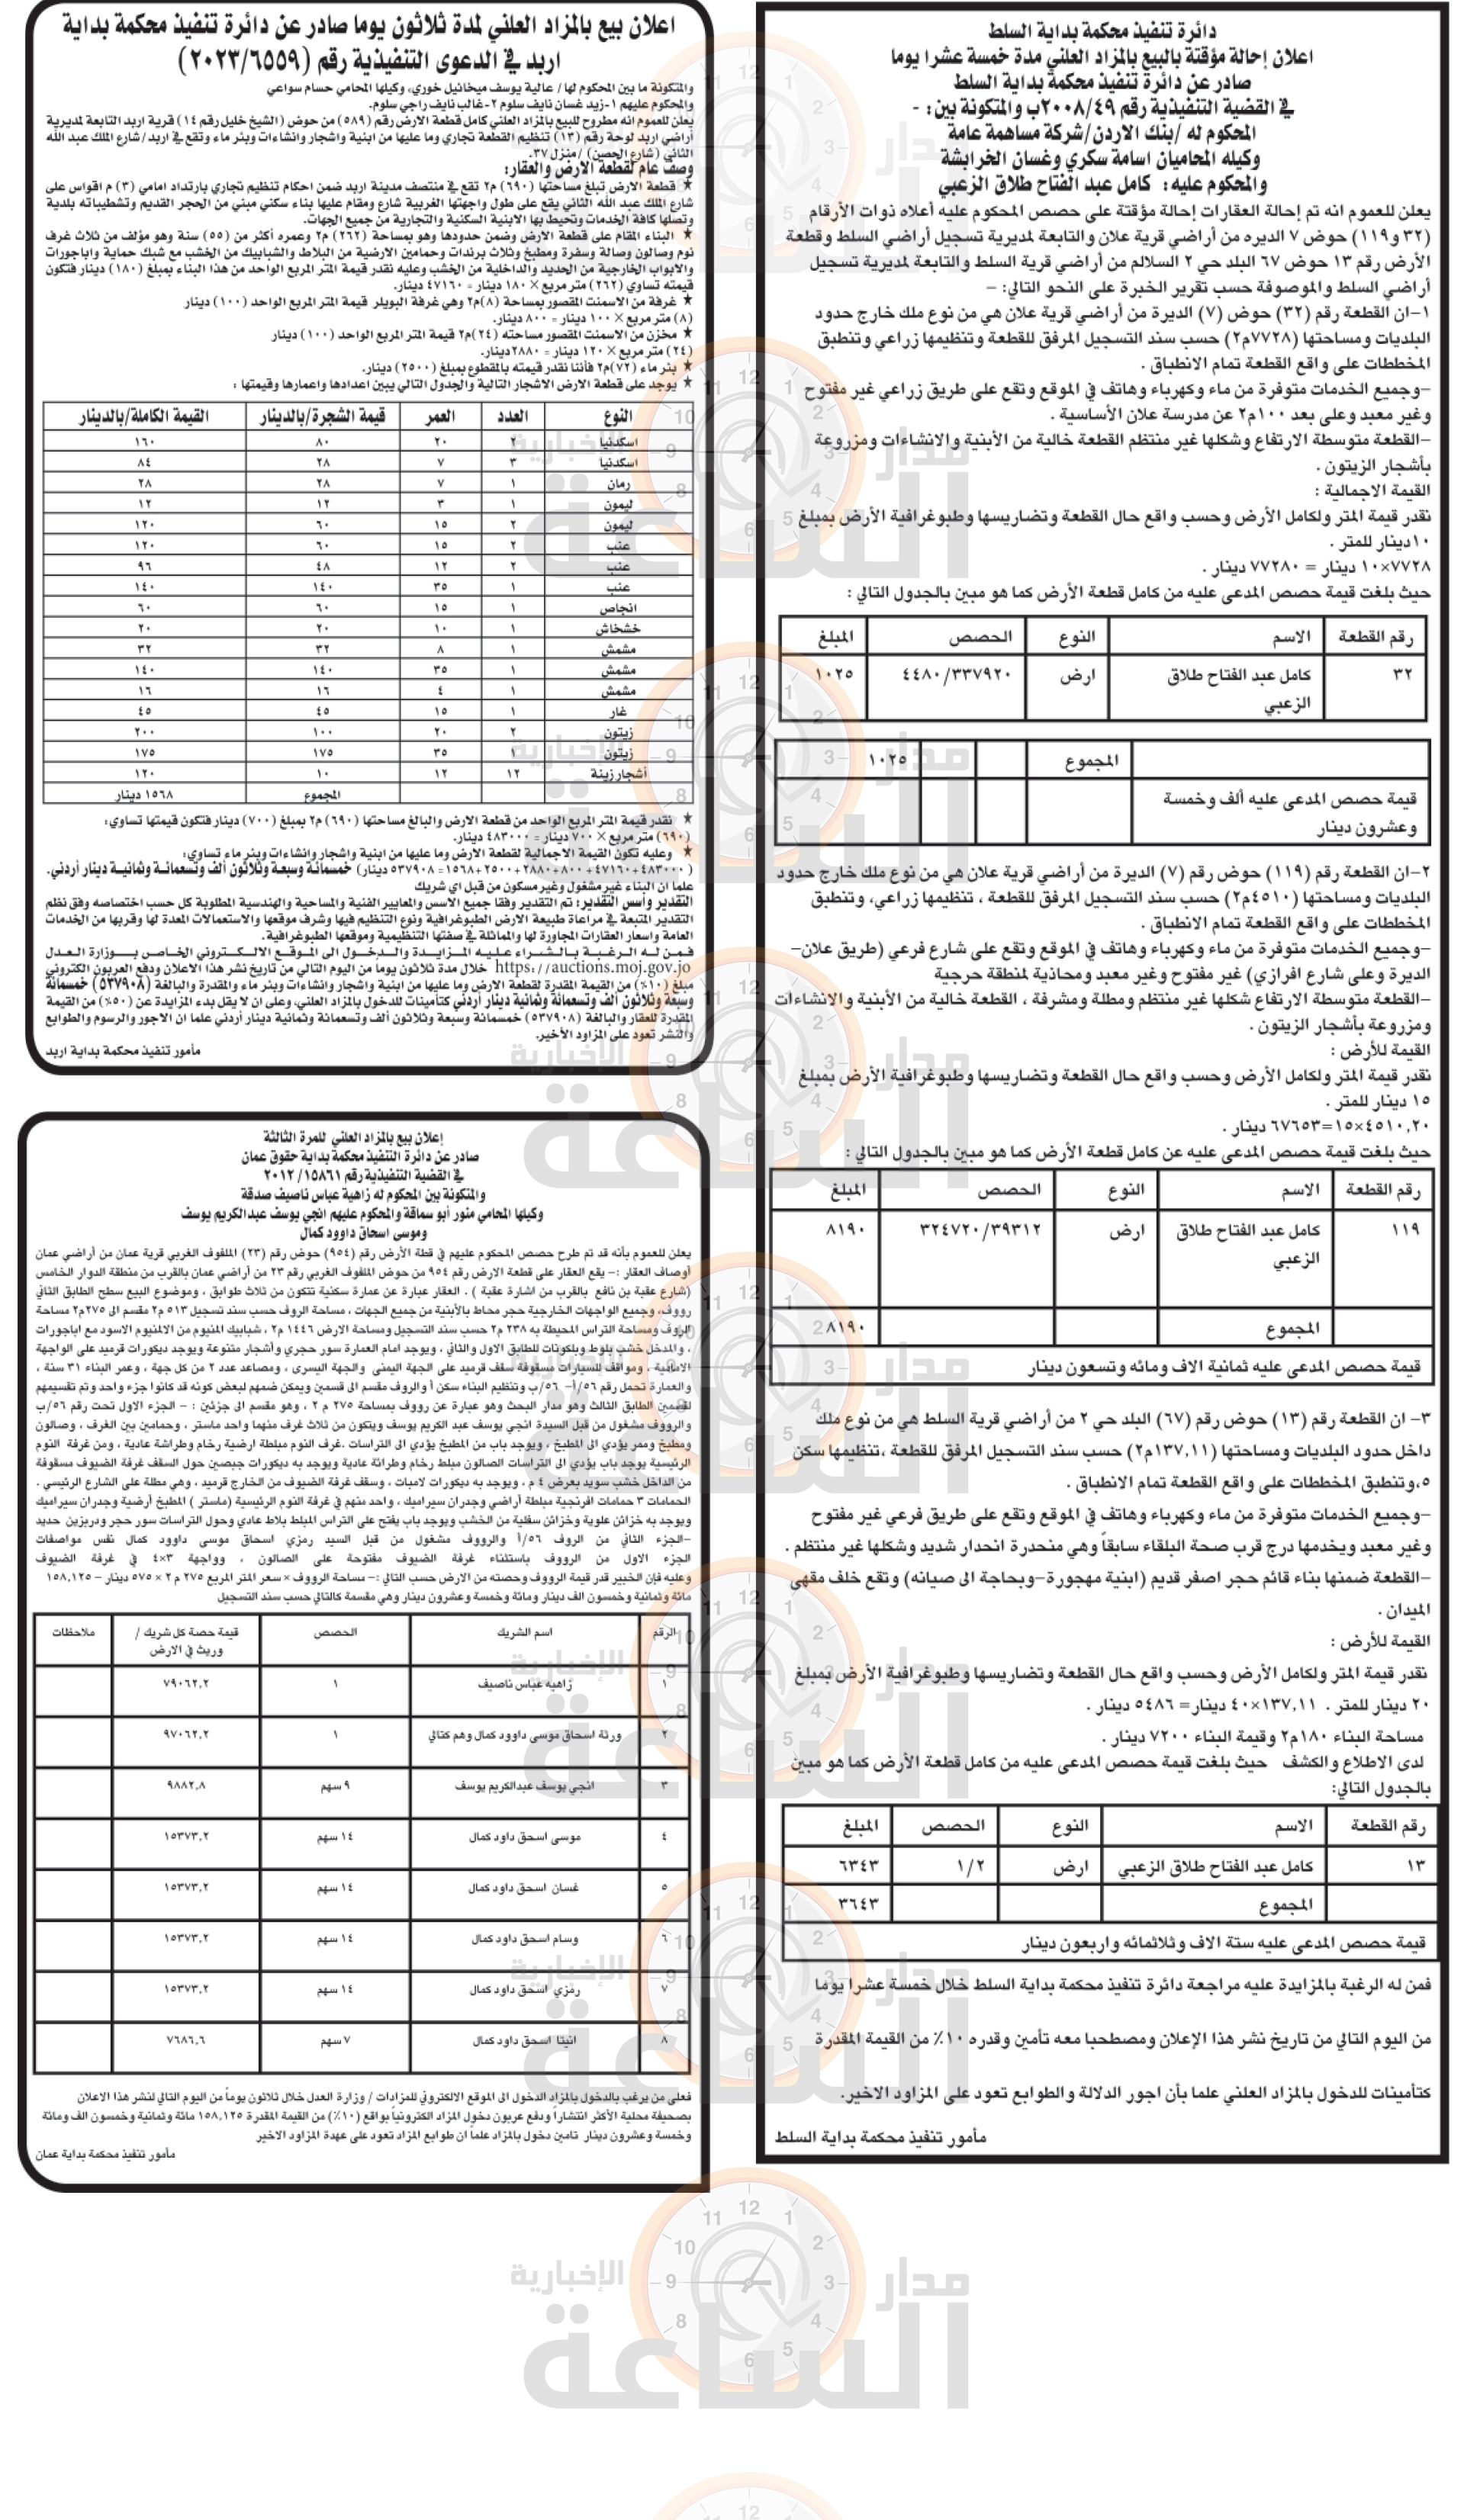 دائرة تنفيذ محكمة بداية السلط
اعلان إحالة مؤقتة بالبيع بالمزاد العلني مدة خمسة عشرا يوما
صادر عن دائرة تنفيذ محكمة بداية السلط
في القضية التنفيذية رقم ٢٠٠٨/٤٩ب والمتكونة بين: -
المحكوم له /بنك الاردن/شركة مساهمة عامة
وكيله المحاميان اسامة سكري وغسان الخرابشة
والمحكوم عليه: كامل عبد الفتاح طلاق الزعبي
يعلن للعموم انه تم إحالة العقارات إحالة مؤقتة على حصص المحكوم عليه أعلاه ذوات الأرقام
(٣٢ و١١٩) حوض ٧ الديره من أراضي قرية علان والتابعة لمديرية تسجيل أراضي السلط وقطعة
الأرض رقم ١٣ حوض ٦٧ البلد حي ٢ السلالم من أراضي قرية السلط والتابعة لمديرية تسجيل
أراضي السلط والموصوفة حسب تقرير الخبرة على النحو التالي: –
١–ان القطعة رقم (٣٢) حوض (٧) الديرة من أراضي قرية علان هي من نوع ملك خارج حدود
البلديات ومساحتها (٧٧٢٨م٢) حسب سند التسجيل المرفق للقطعة وتنظيمها زراعي وتنطبق
المخططات على واقع القطعة تمام الانطباق .
–وجميع الخدمات متوفرة من ماء وكهرباء وهاتف في الموقع وتقع على طريق زراعي غير مفتوح
وغير معبد وعلى بعد ١٠٠م٢ عن مدرسة علان الأساسية .
–القطعة متوسطة الارتفاع وشكلها غير منتظم القطعة خالية من الأبنية والانشاءات ومزروعة
بأشجار الزيتون .
القيمة الاجمالية :
نقدر قيمة المتر ولكامل الأرض وحسب واقع حال القطعة وتضاريسها وطبوغرافية الأرض بمبلغ
١٠دينار للمتر .
٧٧٢٨×١٠ دينار = ٧٧٢٨٠ دينار .
حيث بلغت قيمة حصص المدعى عليه من كامل قطعة الأرض كما هو مبين بالجدول التالي :
رقم القطعة الاسم النوع الحصص المبلغ
٣٢ كامل عبد الفتاح طلاق الزعبي ارض ٤٤٨٠/٣٣٧٩٢٠ ١٠٢٥
المجموع ١٠٢٥
قيمة حصص المدعى عليه ألف وخمسة
وعشرون دينار
٢–ان القطعة رقم (١١٩) حوض رقم (٧) الديرة من أراضي قرية علان هي من نوع ملك خارج حدود
البلديات ومساحتها (٤٥١٠م٢) حسب سند التسجيل المرفق للقطعة ، تنظيمها زراعي، وتنطبق
المخططات على واقع القطعة تمام الانطباق .
–وجميع الخدمات متوفرة من ماء وكهرباء وهاتف في الموقع وتقع على شارع فرعي (طريق علان–
الديرة وعلى شارع افرازي) غير مفتوح وغير معبد ومحاذية لمنطقة حرجية
–القطعة متوسطة الارتفاع شكلها غير منتظم ومطلة ومشرفة ، القطعة خالية من الأبنية والانشاءات
ومزروعة بأشجار الزيتون .
القيمة للأرض :
نقدر قيمة المتر ولكامل الأرض وحسب واقع حال القطعة وتضاريسها وطبوغرافية الأرض بمبلغ
١٥ دينار للمتر .
٤٥١٠,٢٠×١٥=٦٧٦٥٣ دينار .
حيث بلغت قيمة حصص المدعى عليه عن كامل قطعة الأرض كما هو مبين بالجدول التالي :
رقم القطعة الاسم النوع الحصص المبلغ
١١٩ كامل عبد الفتاح طلاق الزعبي ارض ٣٢٤٧٢٠/٣٩٣١٢ ٨١٩٠
المجموع ٨١٩٠
قيمة حصص المدعى عليه ثمانية الاف ومائه وتسعون دينار
٣– ان القطعة رقم (١٣) حوض رقم (٦٧) البلد حي ٢ من أراضي قرية السلط هي من نوع ملك
داخل حدود البلديات ومساحتها (١٣٧,١١م٢) حسب سند التسجيل المرفق للقطعة ،تنظيمها سكن
٥،وتنطبق المخططات على واقع القطعة تمام الانطباق .
–وجميع الخدمات متوفرة من ماء وكهرباء وهاتف في الموقع وتقع على طريق فرعي غير مفتوح
وغير معبد ويخدمها درج قرب صحة البلقاء سابقاً وهي منحدرة انحدار شديد وشكلها غير منتظم .
–القطعة ضمنها بناء قائم حجر اصفر قديم (ابنية مهجورة–وبحاجة الى صيانه) وتقع خلف مقهى
الميدان .
القيمة للأرض :
نقدر قيمة المتر ولكامل الأرض وحسب واقع حال القطعة وتضاريسها وطبوغرافية الأرض بمبلغ
٢٠ دينار للمتر . ١٣٧,١١×٤٠ دينار= ٥٤٨٦ دينار .
مساحة البناء ١٨٠م٢ وقيمة البناء ٧٢٠٠ دينار .
لدى الاطلاع والكشف حيث بلغت قيمة حصص المدعى عليه من كامل قطعة الأرض كما هو مبين
بالجدول التالي:
رقم القطعة الاسم النوع الحصص المبلغ
١٣ كامل عبد الفتاح طلاق الزعبي ارض ١/٢ ٦٣٤٣
المجموع ٣٦٤٣
قيمة حصص المدعى عليه ستة الاف وثلاثمائه واربعون دينار
فمن له الرغبة بالمزايدة عليه مراجعة دائرة تنفيذ محكمة بداية السلط خلال خمسة عشرا يوما
من اليوم التالي من تاريخ نشر هذا الإعلان ومصطحبا معه تأمين وقدره ١٠٪ من القيمة المقدرة
كتأمينات للدخول بالمزاد العلني علما بأن اجور الدلالة والطوابع تعود على المزاود الاخير.
مأمور تنفيذ محكمة بداية السلط
اعلان بيع بالمزاد العلني لمدة ثلاثون يوما صادر عن دائرة تنفيذ محكمة بداية
اربد في الدعوى التنفيذية رقم (٢٠٢٣/٦٥٥٩)
والمتكونة ما بين المحكوم لها/ عالية يوسف ميخائيل خوري، وكيلها المحامي حسام سواعي
والمحكوم عليهم ١-زيد غسان نايف سلوم ٢-غالب نايف راجي سلوم.
يعلن للعموم انه مطروح للبيع بالمزاد العلني كامل قطعة الارض رقم (٥٨٩) من حوض (الشيخ خليل رقم ١٤) قرية اربد التابعة لمديرية
أراضي اربد لوحة رقم (١٣) تنظيم القطعة تجاري وما عليها من ابنية واشجار وانشاءات وبئر ماء وتقع في اربد/شارع الملك عبد الله
الثاني (شارع الحصن) /منزل ٣٧.
وصف عام لقطعة الارض والعقار:
★ قطعة الارض تبلغ مساحتها (٦٩٠) م٢ تقع في منتصف مدينة اربد ضمن احكام تنظيم تجاري بارتداد امامي (٣) م اقواس على
شارع الملك عبد الله الثاني يقع على طول واجهتها الغربية شارع ومقام عليها بناء سكني مبني من الحجر القديم وتشطيباته بلدية
وتصلها كافة الخدمات وتحيط بها الابنية السكنية والتجارية من جميع الجهات.
★ البناء المقام على قطعة الارض وضمن حدودها وهو بمساحة (٢٦٢) م٢ وعمره أكثر من (٥٥) سنة وهو مؤلف من ثلاث غرف
نوم وصالون وصالة وسفرة ومطبخ وثلاث برندات وحمامين الارضية من البلاط والشبابيك من الخشب مع شبك حماية واباجورات
والابواب الخارجية من الحديد والداخلية من الخشب وعليه نقدر قيمة المتر المربع الواحد من هذا البناء بمبلغ (١٨٠) دينار فتكون
قيمته تساوي (٢٦٢) متر مربع × ١٨٠ دينار = ٤٧١٦٠ دينار.
★ غرفة من الاسمنت المقصور بمساحة (٨)م٢ وهي غرفة البويلر قيمة المتر المربع الواحد (١٠٠) دينار
(٨) متر مربع × ١٠٠ دينار = ٨٠٠ دينار.
★ مخزن من الاسمنت المقصور مساحته (٢٤)م٢ قيمة المتر المربع الواحد (١٠٠) دينار
(٢٤) متر مربع × ١٢٠ دينار = ٢٨٨٠دينار.
★ بئر ماء (٧٢)م٣ فأننا نقدر قيمته بالمقطوع بمبلغ (٢٥٠٠) دينار.
★ يوجد على قطعة الارض الاشجار التالية والجدول التالي يبين اعدادها واعمارها وقيمتها :
النوع العدد العمر قيمة الشجرة/بالدينار القيمة الكاملة/بالدينار
اسكدنيا ٢ ٢٠ ٨٠ ١٦٠
اسكدنيا ٣ ٧ ٢٨ ٨٤
رمان ١ ٧ ٢٨ ٢٨
ليمون ١ ٣ ١٢ ١٢
ليمون ٢ ١٥ ٦٠ ١٢٠
عنب ٢ ١٥ ٦٠ ١٢٠
عنب ٢ ١٢ ٤٨ ٩٦
عنب ١ ٣٥ ١٤٠ ١٤٠
انجاص ١ ١٥ ٦٠ ٦٠
خشخاش ١ ١٠ ٢٠ ٢٠
مشمش ١ ٨ ٣٢ ٣٢
مشمش ١ ٣٥ ١٤٠ ١٤٠
مشمش ١ ٤ ١٦ ١٦
غار ١ ١٥ ٤٥ ٤٥
زيتون ٢ ٢٠ ١٠٠ ٢٠٠
زيتون ١ ٣٥ ١٧٥ ١٧٥
أشجار زينة ١٢ ١٢ ١٠ ١٢٠
المجموع ١٥٦٨ دينار
★ نقدر قيمة المتر المربع الواحد من قطعة الارض والبالغ مساحتها (٦٩٠) م٢ بمبلغ (٧٠٠) دينار فتكون قيمتها تساوي:
(٦٩٠) متر مربع × ٧٠٠ دينار = ٤٨٣٠٠٠ دينار.
★ وعليه تكون القيمة الاجمالية لقطعة الارض وما عليها من ابنية واشجار وانشاءات وبئر ماء تساوي:
(٤٨٣٠٠٠+٤٧١٦٠+٨٠٠+٢٨٨٠+٢٥٠٠+١٥٦٨=٥٣٧٩٠٨ دينار) خمسمائة وسبعة وثلاثون ألف وتسعمائة وثمانية دينار أردني.
علما ان البناء غير مشغول وغير مسكون من قبل اي شريك
التقدير وأسس التقدير: تم التقدير وفقا جميع الاسس والمعايير الفنية والمساحية والهندسية المطلوبة كل حسب اختصاصه وفق نظم
التقدير المتبعة في مراعاة طبيعة الارض الطبوغرافية ونوع التنظيم فيها وشرف موقعها والاستعمالات المعدة لها وقربها من الخدمات
العامة واسعار العقارات المجاورة لها والمماثلة في صفتها التنظيمية وموقعها الطبوغرافية.
فمن له الرغبة بالشراء عليه المزايدة والدخول الى الموقع الالكتروني الخاص بوزارة العدل
https://auctions.moj.gov.jo خلال مدة ثلاثون يوما من اليوم التالي من تاريخ نشر هذا الاعلان ودفع العربون الكتروني
مبلغ (١٠٪) من القيمة المقدرة لقطعة الارض وما عليها من ابنية واشجار وانشاءات وبئر ماء والمقدرة والبالغة (٥٣٧٩٠٨) خمسمائة
وسبعة وثلاثون ألف وتسعمائة وثمانية دينار أردني كتأمينات للدخول بالمزاد العلني، وعلى ان لا يقل بدء المزايدة عن (٥٠٪) من القيمة
المقدرة للعقار والبالغة (٥٣٧٩٠٨) خمسمائة وسبعة وثلاثون ألف وتسعمائة وثمانية دينار أردني علما ان الاجور والرسوم والطوابع
والنشر تعود على المزاود الأخير.
مأمور تنفيذ محكمة بداية اربد
إعلان بيع بالمزاد العلني للمرة الثالثة
صادر عن دائرة التنفيذ محكمة بداية حقوق عمان
في القضية التنفيذية رقم ١٥٨٦١/ ٢٠١٢
والمتكونة بين المحكوم له زاهية عباس ناصيف صدقة
وكيلها المحامي منور أبو سماقة والمحكوم عليهم انجي يوسف عبدالكريم يوسف
وموسى اسحاق داوود كمال
يعلن للعموم بأنه قد تم طرح حصص المحكوم عليهم في قطة الأرض رقم (٩٥٤) حوض رقم (٢٣) الملفوف الغربي قرية عمان من أراضي عمان
أوصاف العقار :– يقع العقار على قطعة الارض رقم ٩٥٤ من حوض الملفوف الغربي رقم ٢٣ من أراضي عمان بالقرب من منطقة الدوار الخامس
(شارع عقبة بن نافع بالقرب من اشارة عقبة ) . العقار عبارة عن عمارة سكنية تتكون من ثلاث طوابق ، وموضوع البيع سطح الطابق الثاني
رووف، وجميع الواجهات الخارجية حجر محاط بالأبنية من جميع الجهات ، مساحة الروف حسب سند تسجيل ٥١٣ م٢ مقسم الى ٢٧٥م٢ مساحة
الروف ومساحة التراس المحيطة به ٢٣٨ م٢ حسب سند التسجيل ومساحة الارض ١٤٤٦ م٢ ، شبابيك المنيوم من الالمنيوم الاسود مع اباجورات
، والمدخل خشب بلوط وبلكونات للطابق الاول والثاني ، ويوجد امام العمارة سور حجري وأشجار متنوعة ويوجد ديكورات قرميد على الواجهة
الامامية ، ومواقف للسيارات مسقوفة سقف قرميد على الجهة اليمنى والجهة اليسرى ، ومصاعد عدد ٢ من كل جهة ، وعمر البناء ٣١ سنة ،
والعمارة تحمل رقم ٥٦/أ– ٥٦/ب وتنظيم البناء سكن أ والروف مقسم الى قسمين ويمكن ضمهم لبعض كونه قد كانوا جزء واحد وتم تقسيمهم
لقسمين الطابق الثالث وهو مدار البحث وهو عبارة عن رووف بمساحة ٢٧٥ م ٢ ، وهو مقسم الى جزئين : – الجزء الاول تحت رقم ٥٦/ب
والرووف مشغول من قبل السيدة انجي يوسف عبد الكريم يوسف ويتكون من ثلاث غرف منهما واحد ماستر ، وحمامين بين الغرف ، وصالون
ومطبخ وممر يؤدي الى المطبخ ، ويوجد باب من المطبخ يؤدي الى التراسات .غرف النوم مبلطة ارضية رخام وطراشة عادية ، ومن غرفة النوم
الرئيسية يوجد باب يؤدي الى التراسات الصالون مبلط رخام وطراثة عادية ويوجد به ديكورات جبصين حول السقف غرفة الضيوف مسقوفة
من الداخل خشب سويد بعرض ٤ م ، ويوجد به ديكورات لامبات ، وسقف غرفة الضيوف من الخارج قرميد ، وهي مطلة على الشارع الرئيسي .
الحمامات ٣ حمامات افرنجية مبلطة أراضي وجدران سيراميك ، واحد منهم في غرفة النوم الرئيسية (ماستر ) المطبخ أرضية وجدران سيراميك
ويوجد به خزائن علوية وخزائن سفلية من الخشب ويوجد باب يفتح على التراس المبلط بلاط عادي وحول التراسات سور حجر ودربزين حديد
–الجزء الثاني من الروف ٥٦/أ والرووف مشغول من قبل السيد رمزي اسحاق موسى داوود كمال نفس مواصفات
الجزء الاول من الرووف باستثناء غرفة الضيوف مفتوحة على الصالون ، وواجهة ٣×٤ في غرفة الضيوف
وعليه فإن الخبير قدر قيمة الرووف وحصته من الارض حسب التالي :– مساحة الرووف × سعر المتر المربع ٢٧٥ م ٢ × ٥٧٥ دينار – ١٥٨,١٢٥
مائة وثمانية وخمسون الف دينار ومائة وخمسة وعشرون دينار وهي مقسمة كالتالي حسب سند التسجيل
الرقم اسم الشريك الحصص قيمة حصة كل شريك / وريث في الارض ملاحظات
١ زاهيه عباس ناصيف ١ ٧٩٠٦٢,٢
٢ ورثة اسحاق موسى داوود كمال وهم كتالي ١ ٩٧٠٦٢,٢
٣ انجي يوسف عبدالكريم يوسف ٩ سهم ٩٨٨٢,٨
٤ موسى اسحق داود كمال ١٤ سهم ١٥٣٧٣,٢
٥ غسان اسحق داود كمال ١٤ سهم ١٥٣٧٣,٢
٦ وسام اسحق داود كمال ١٤ سهم ١٥٣٧٣,٢
٧ رمزي اسحق داود كمال ١٤ سهم ١٥٣٧٣,٢
٨ انيتا اسحق داود كمال ٧ سهم ٧٦٨٦,٦
فعلى من يرغب بالدخول بالمزاد الدخول الى الموقع الالكتروني للمزادات / وزارة العدل خلال ثلاثون يوماً من اليوم التالي لنشر هذا الاعلان
بصحيفة محلية الأكثر انتشاراً ودفع عربون دخول المزاد الكترونياً بواقع (١٠٪) من القيمة المقدرة ١٥٨,١٢٥ مائة وثمانية وخمسون الف ومائة
وخمسة وعشرون دينار تامين دخول بالمزاد علماً ان طوابع المزاد تعود على عهدة المزاود الاخير
مأمور تنفيذ محكمة بداية عمان
مدار الساعة الإخبارية